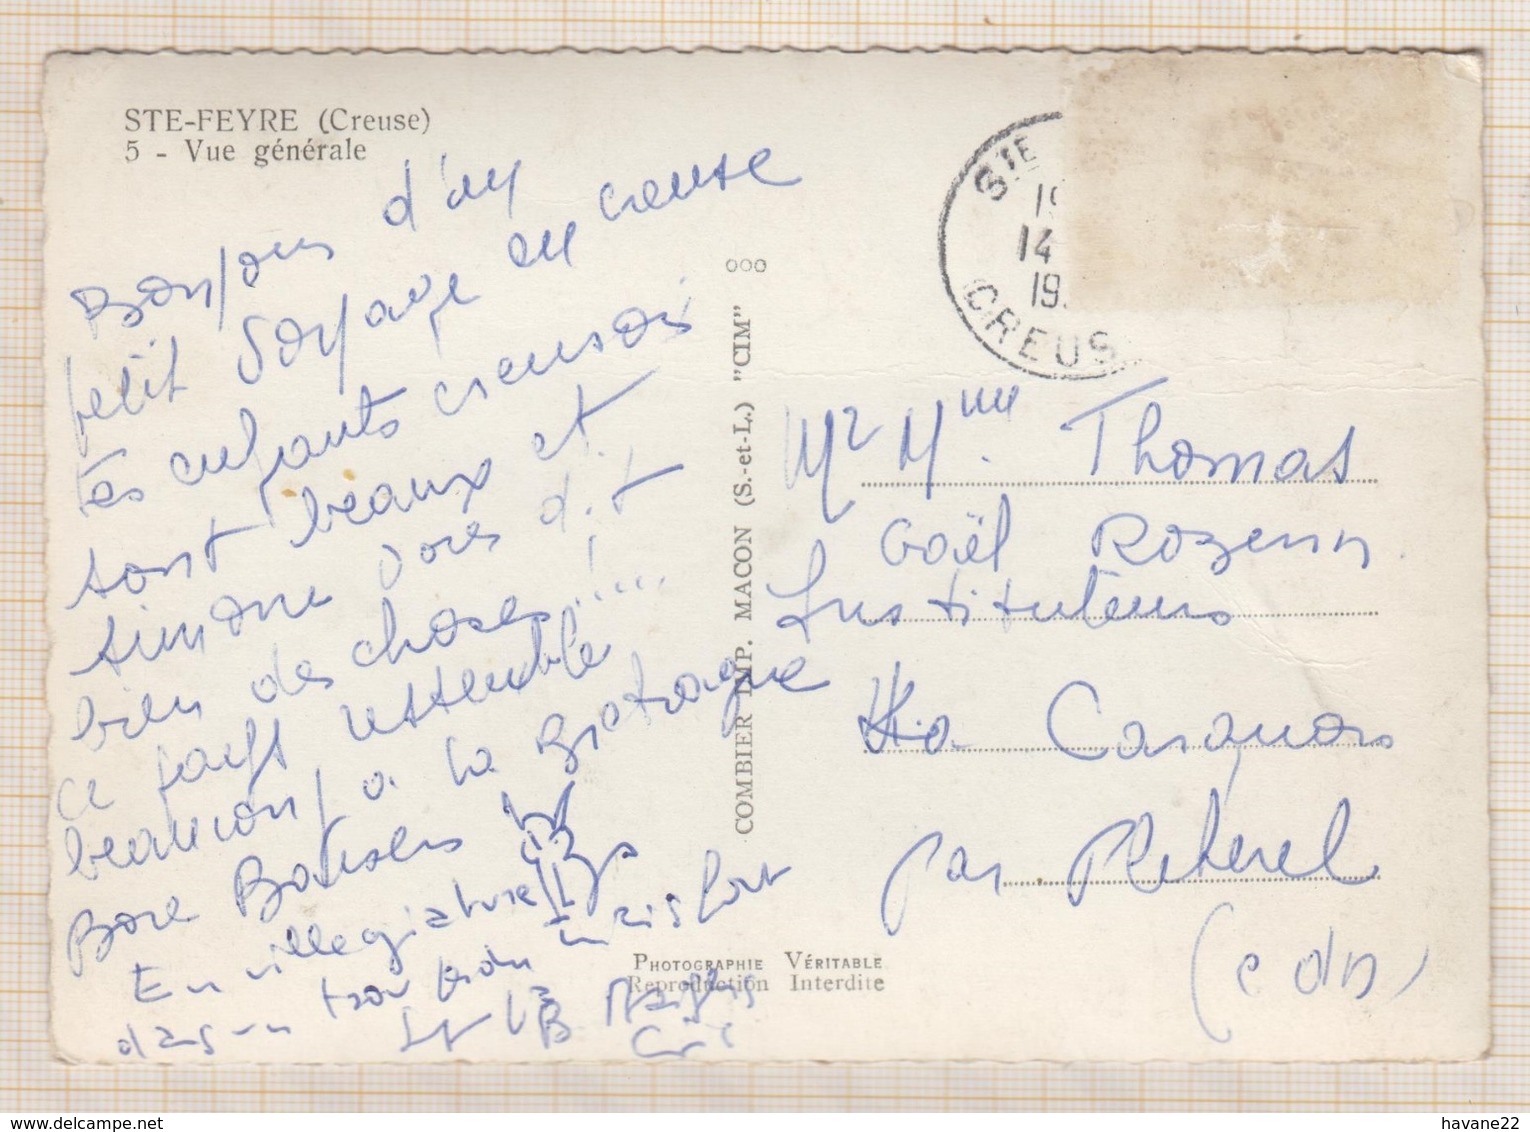 STE-FEYRE (Creuse)
5 - Vue générale
Bonjour d'un
petit voyage en creuse
tes enfants creusois
sont beaux et
simone dit
bien des choses !....
ce pays ressemble
beaucoup à la Bretagne
Bons Baisers
En villegiature
dans un trou perdu mais fort
000
COMBIER IMP. MACON (S.-et-L.) "CIM"
PHOTOGRAPHIE VÉRITABLE
Reproduction Interdite
STE
14
19
CREUS
Mr Mme Thomas
Gaël Rozenn
Instituteurs
par Pleherel
(c du n)
havane22